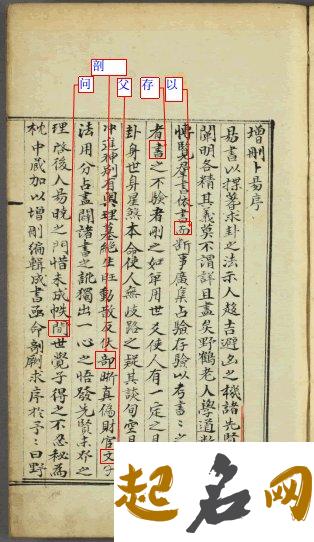 增刪卜易序
易書以揲蓍求卦之法示人趨吉避凶之機諸先賢
闡明各精其義莫不謂詳且盡矣野鶴老人學道數
博覽羣書依書而斷事廣集占驗存驗以考書
者書之不驗者刪之如軍用世爻使人有一定之見
卦身世身星煞本命使人無歧路之疑其談旬空月
沖進神別有奧理墓絶生旺動散反伏部斷真偽財官文
法用分占盡闢諸書之訛獨出一心之悟發先賢未發之
理啓後人易曉之門惜未成帙間世覺子得之不忍秘為
枕中咸加以增刪編輯成書亟命剞劂求序於予予曰野
以
存
父
剖
问
起名网